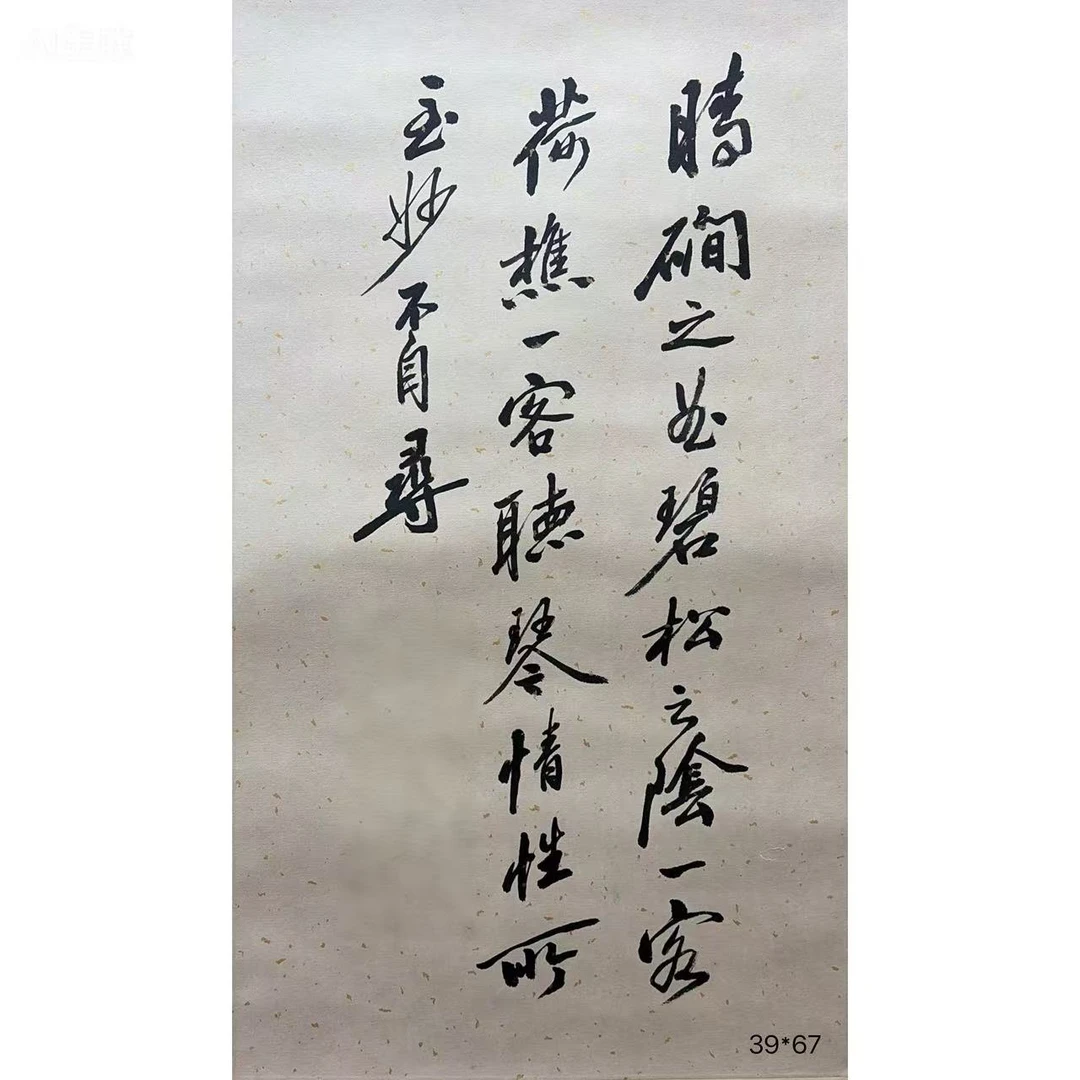 晴磵之曲碧松之陰一客
荷樵一客聽琴情性所
至妙不自尋
39*67